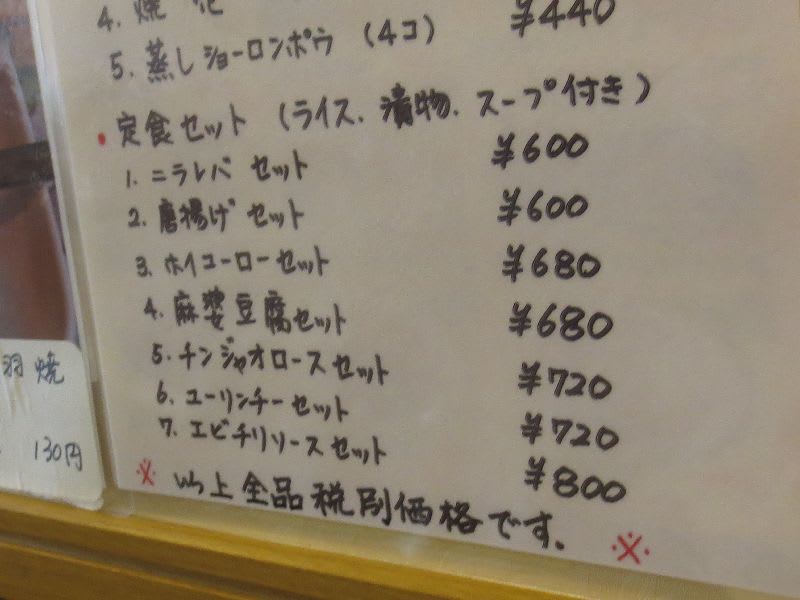 4. 焼 ¥440
5. 蒸しショーロンポウ (4コ)
• 定食セット (ライス、漬物、スープ付き)
1. ニラレバ セット ¥600
2. 唐揚げセット ¥600
3. ホイコーローセット ¥680
4. 麻婆豆腐セット ¥680
5. チンジャオロースセット ¥720
6. ユーリンチーセット ¥720
7. エビチリソースセット ¥800
※ 以上全品税別価格です。 ※
羽焼
130円